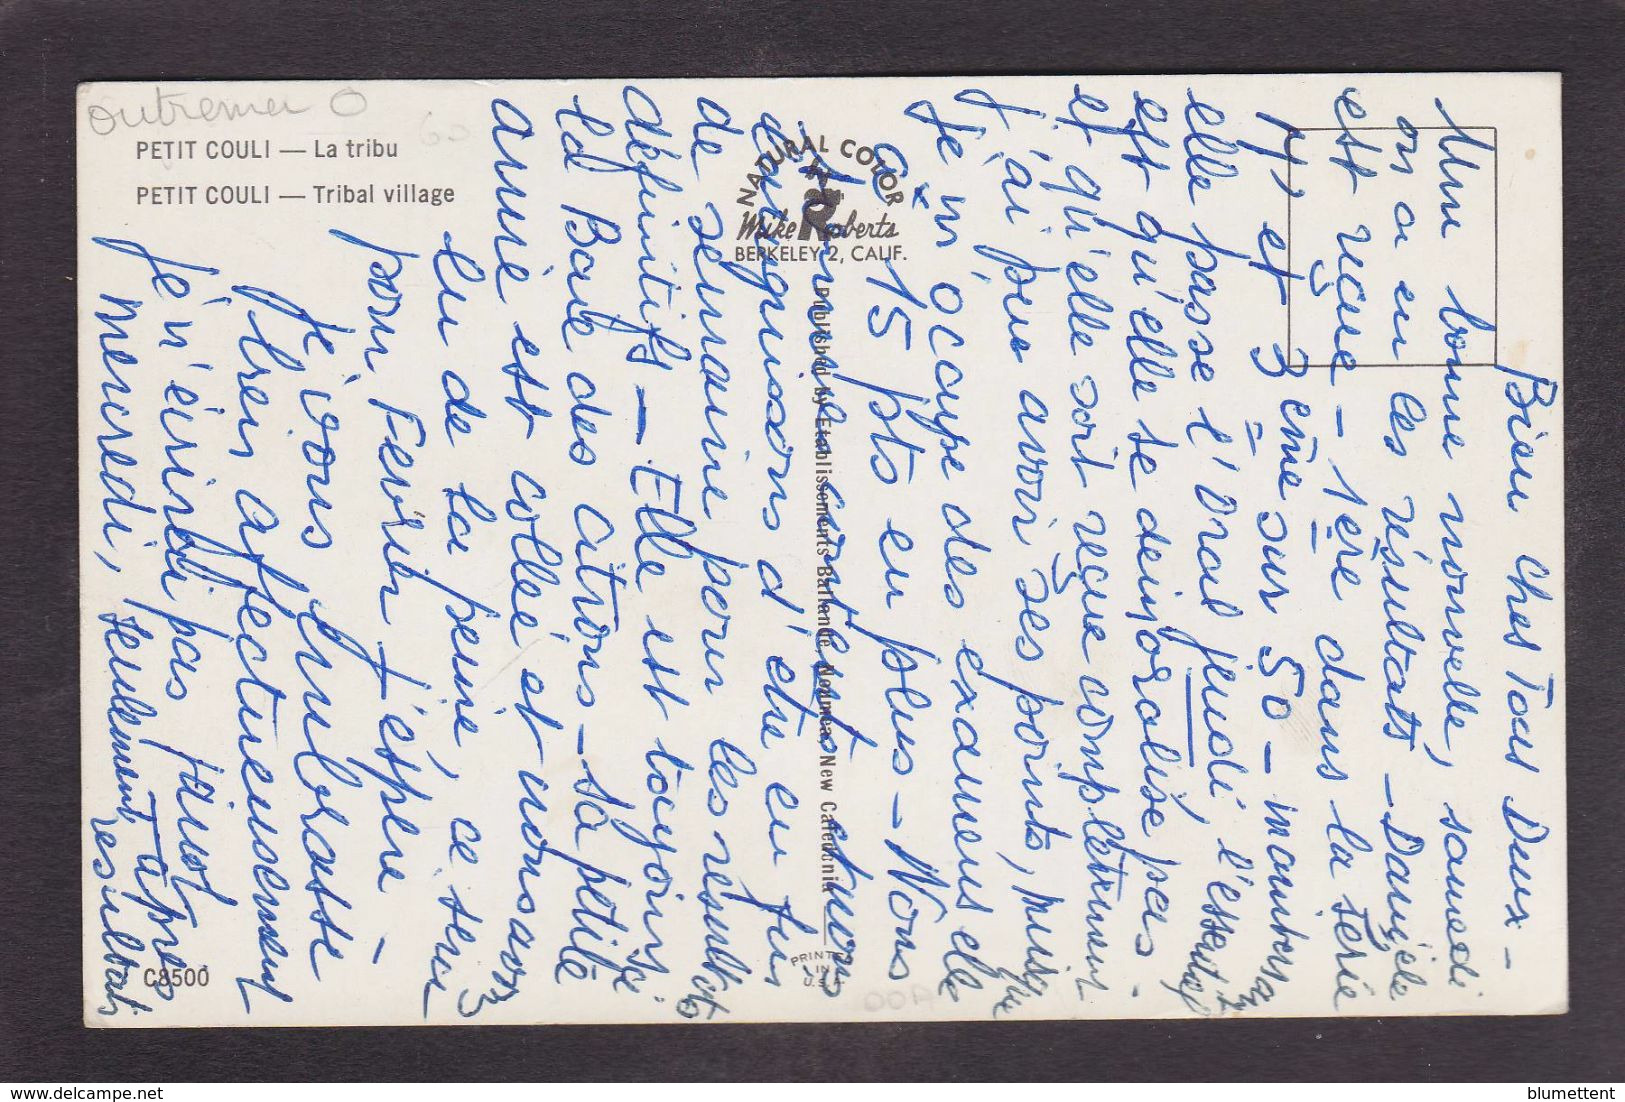 outremer
60
PETIT COULI — La tribu
PETIT COULI — Tribal village
NATURAL COLOR
Mike Roberts
BERKELEY 2, CALIF.
Published by Etablissements Ballande, Noumea, New Caledonia
PRINTED
IN
U.S.A.
C8500
Bien Chers Tous Deux -
Une bonne nouvelle, samedi
on a eu les résultats - Danièle
est reçue - 1ère dans la série
M, et 3 ème sur 50 - maintenant
elle passe l'Oral jeudi, l'essentiel
est qu'elle se démoralise pas
et qu'elle soit reçue complètement -
j'ai pu avoir ses points, puisque
je m'occupe des examens elle
a 15 pts en plus - Nous
sommes contents et nous
languissons d'être en fin
de semaine pour les résultats
définitifs - Elle est toujours à
la Baie des Citrons - sa petite
amie est collée et nous avons
eu de la peine, ce sera
pour Février j'espère -
Je vous embrasse
bien affectueusement
Je n'écrirai pas
Mercredi, seulement après
résultats